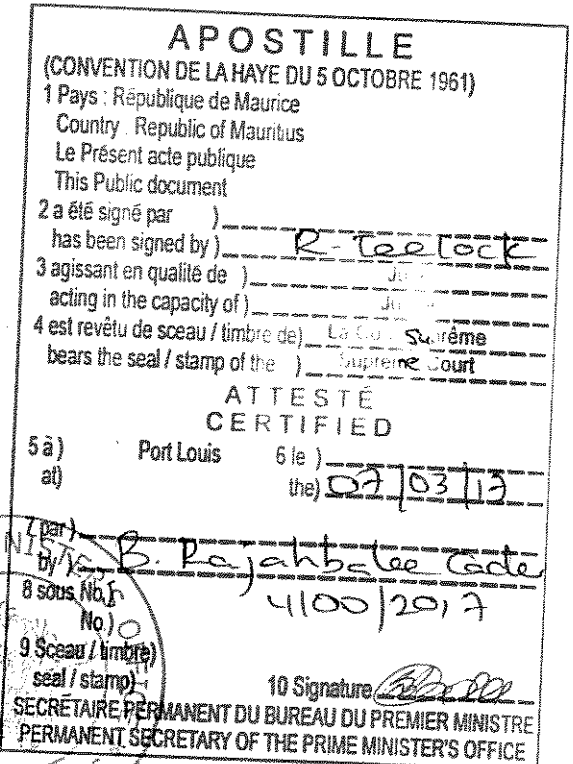 APOSTILLE
(CONVENTION DE LA HAYE DU 5 OCTOBRE 1961)
1 Pays : République de Maurice
Country : Republic of Mauritius
Le Présent acte publique
This Public document
2 a été signé par )
has been signed by ) R- Teelock
3 agissant en qualité de )
acting in the capacity of )
4 est revêtu de sceau / timbre de) La Suprême
bears the seal / stamp of the ) Supreme Court
ATTESTÉ
CERTIFIED
5 à ) Port Louis 6 le )
at) the) 07/03/17
7 par )
by ) B. Rajahbalee Cader
8 sous Nb.)
No.) 4100/2017
9 Sceau / timbre)
seal / stamp) 10 Signature
SECRÉTAIRE PERMANENT DU BUREAU DU PREMIER MINISTRE
PERMANENT SECRETARY OF THE PRIME MINISTER'S OFFICE